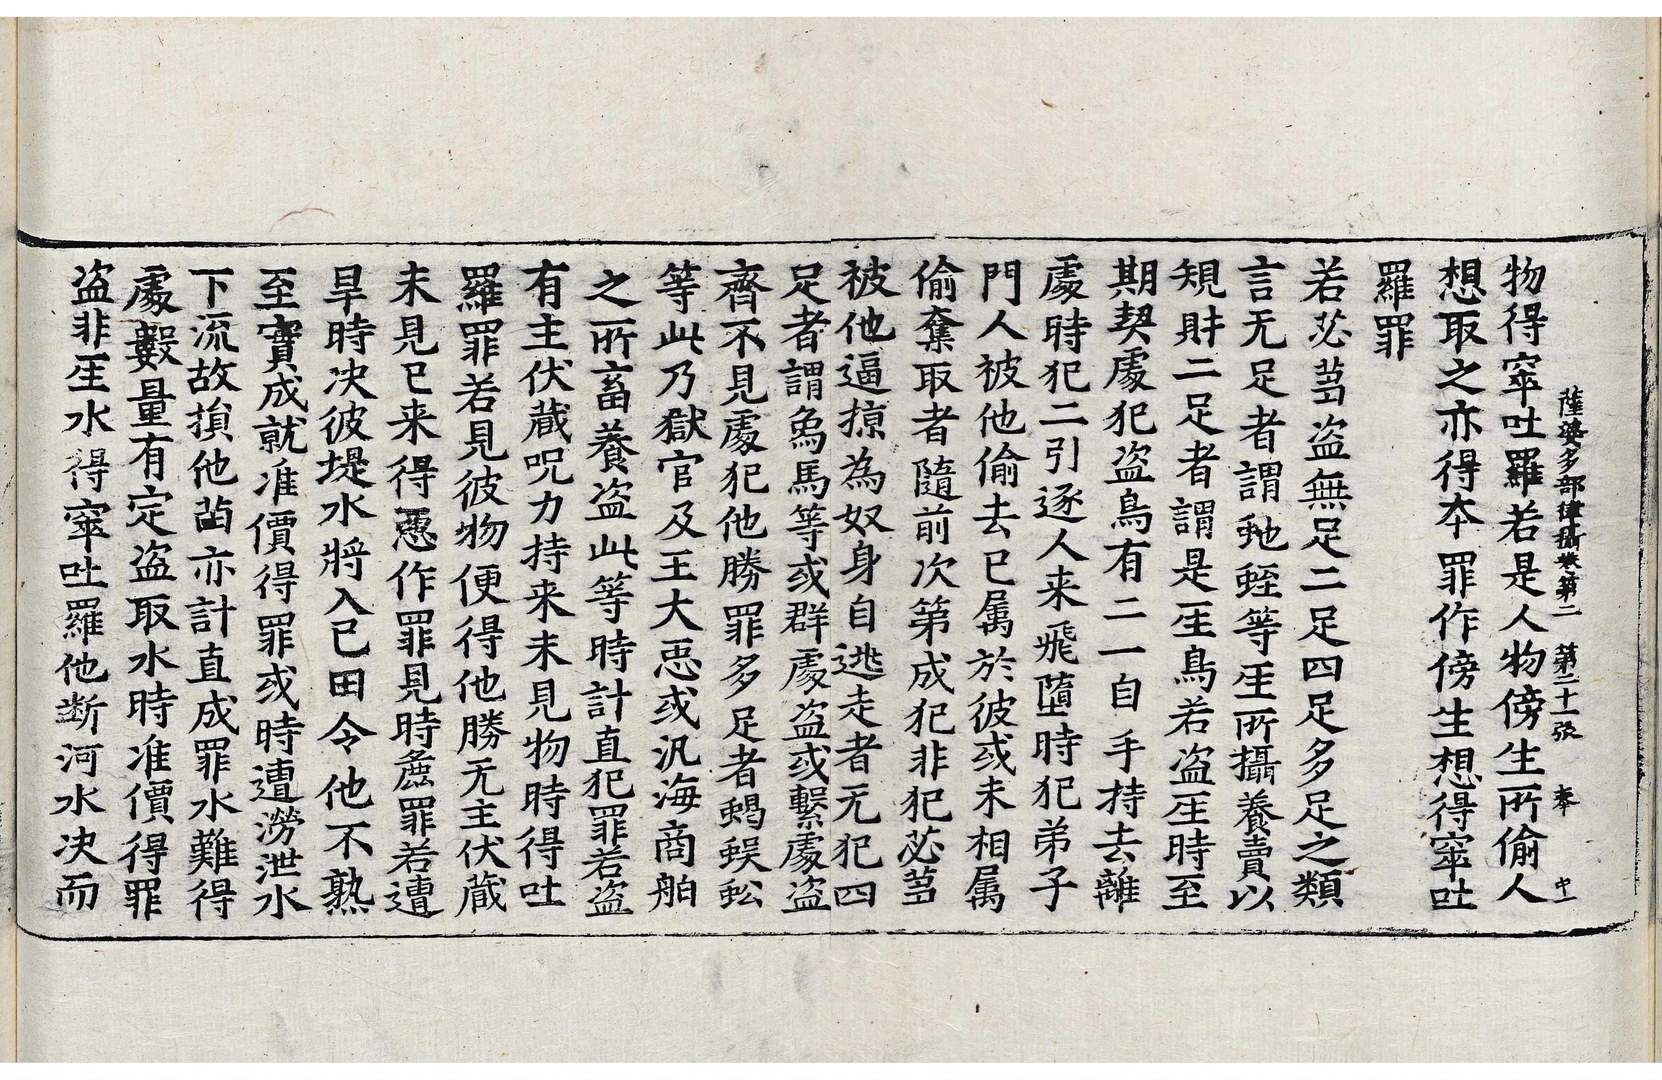 薩婆多部律攝卷第二　第二十一張　奉　中一
物得窣吐羅若是人物傍生所偷人
想取之亦得夲罪作傍生想得窣吐
羅罪
若苾芻盗無足二足四足多足之類
言无足者謂虵蛭等生所攝養賣以
規財二足者謂是生鳥若盗生時至
期契處犯盗鳥有二一自手持去離
處時犯二引逐人来飛墮時犯弟子
門人被他偷去已属於彼或未相属
偷奪取者隨前次第成犯非犯苾芻
被他逼掠為奴身自逃走者无犯四
足者謂象馬等或群處盗或繫處盗
齊不見處犯他勝罪多足者蝎蜈蚣
等此乃獄官及王大惡或汎海商舶
之所畜養盗此等時計直犯罪若盗
有主伏蔵呪力持来未見物時得吐
羅罪若見彼物便得他勝无主伏蔵
未見已来得惡作罪見時麁罪若遭
旱時决彼堤水將入已田令他不熟
至實成就准價得罪或時遭澇泄水
下流故損他苗亦計直成罪水難得
處數量有定盗取水時准價得罪
盗非生水得窣吐羅他断河水决而